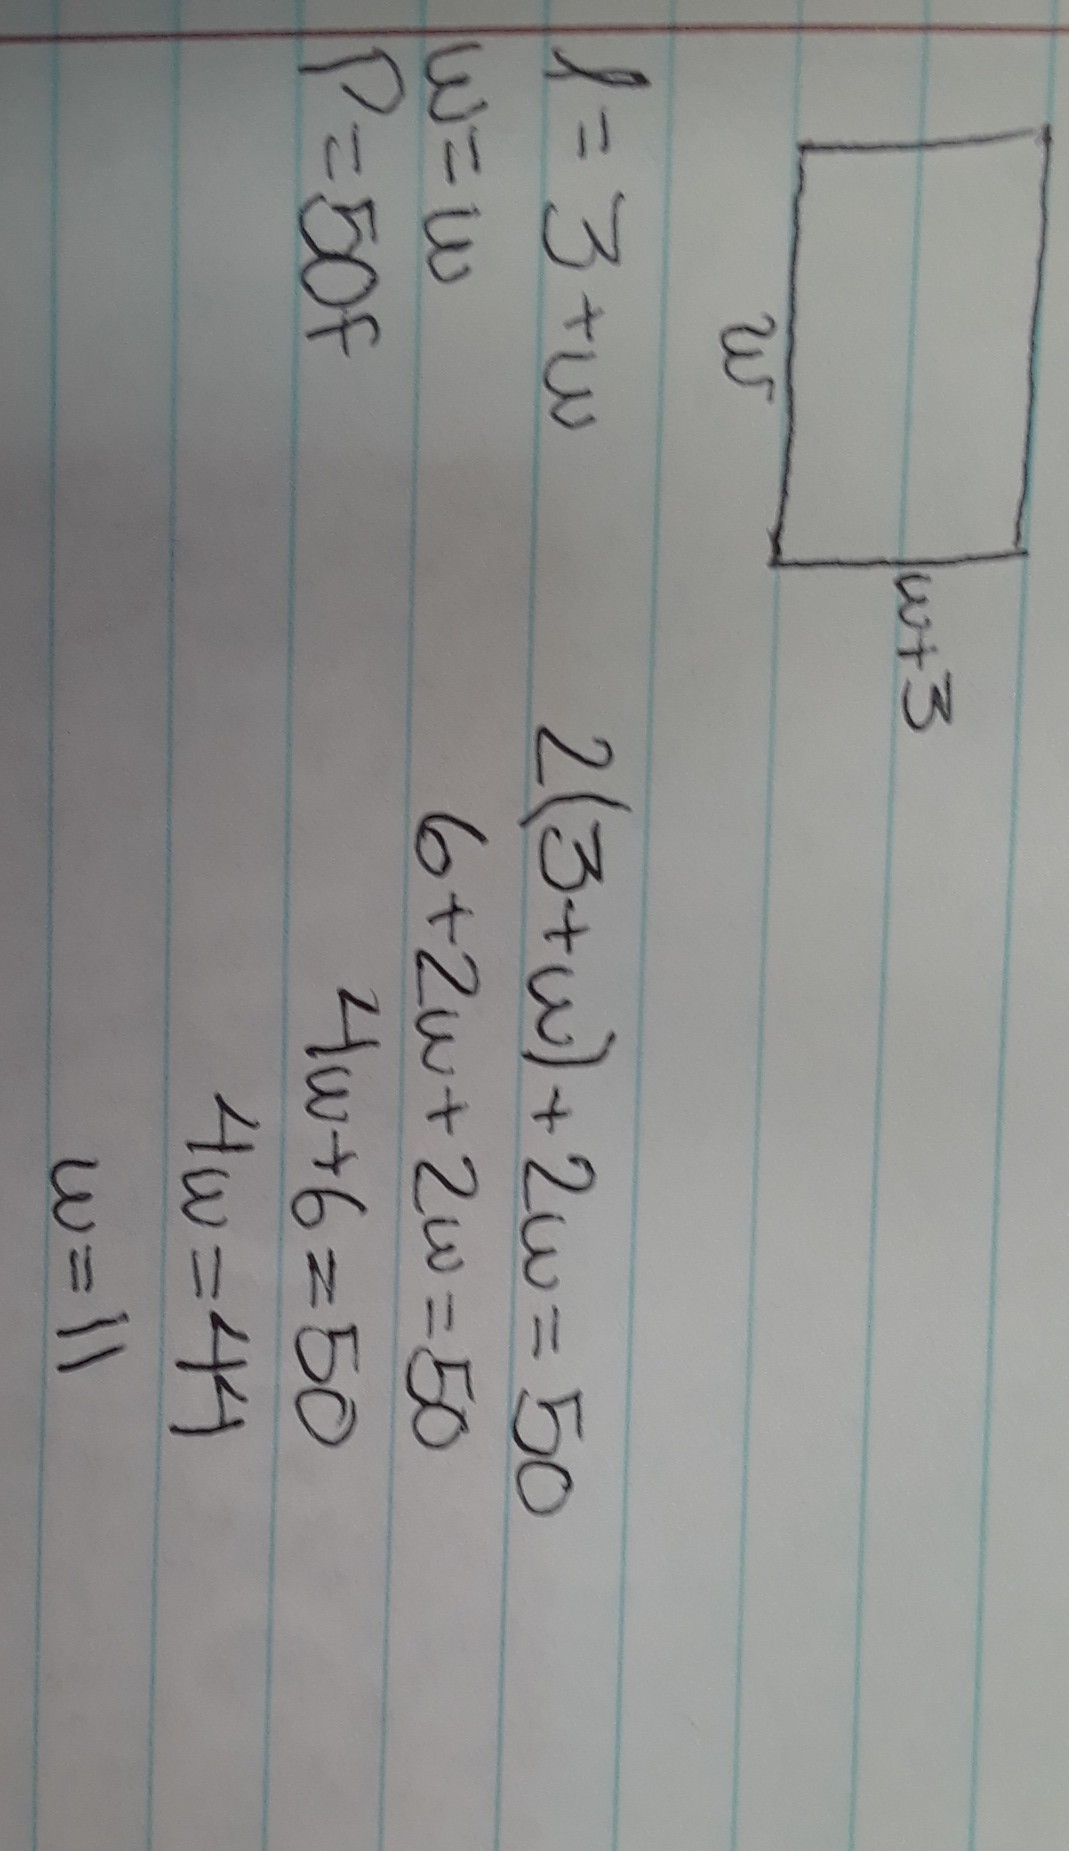 w+3
w
l = 3 + w
w = w
P = 50f
2(3+w) + 2w = 50
6 + 2w + 2w = 50
4w + 6 = 50
4w = 44
w = 11